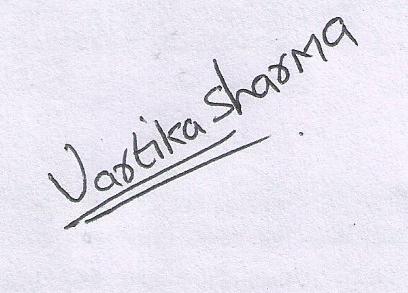 Vartika Sharma